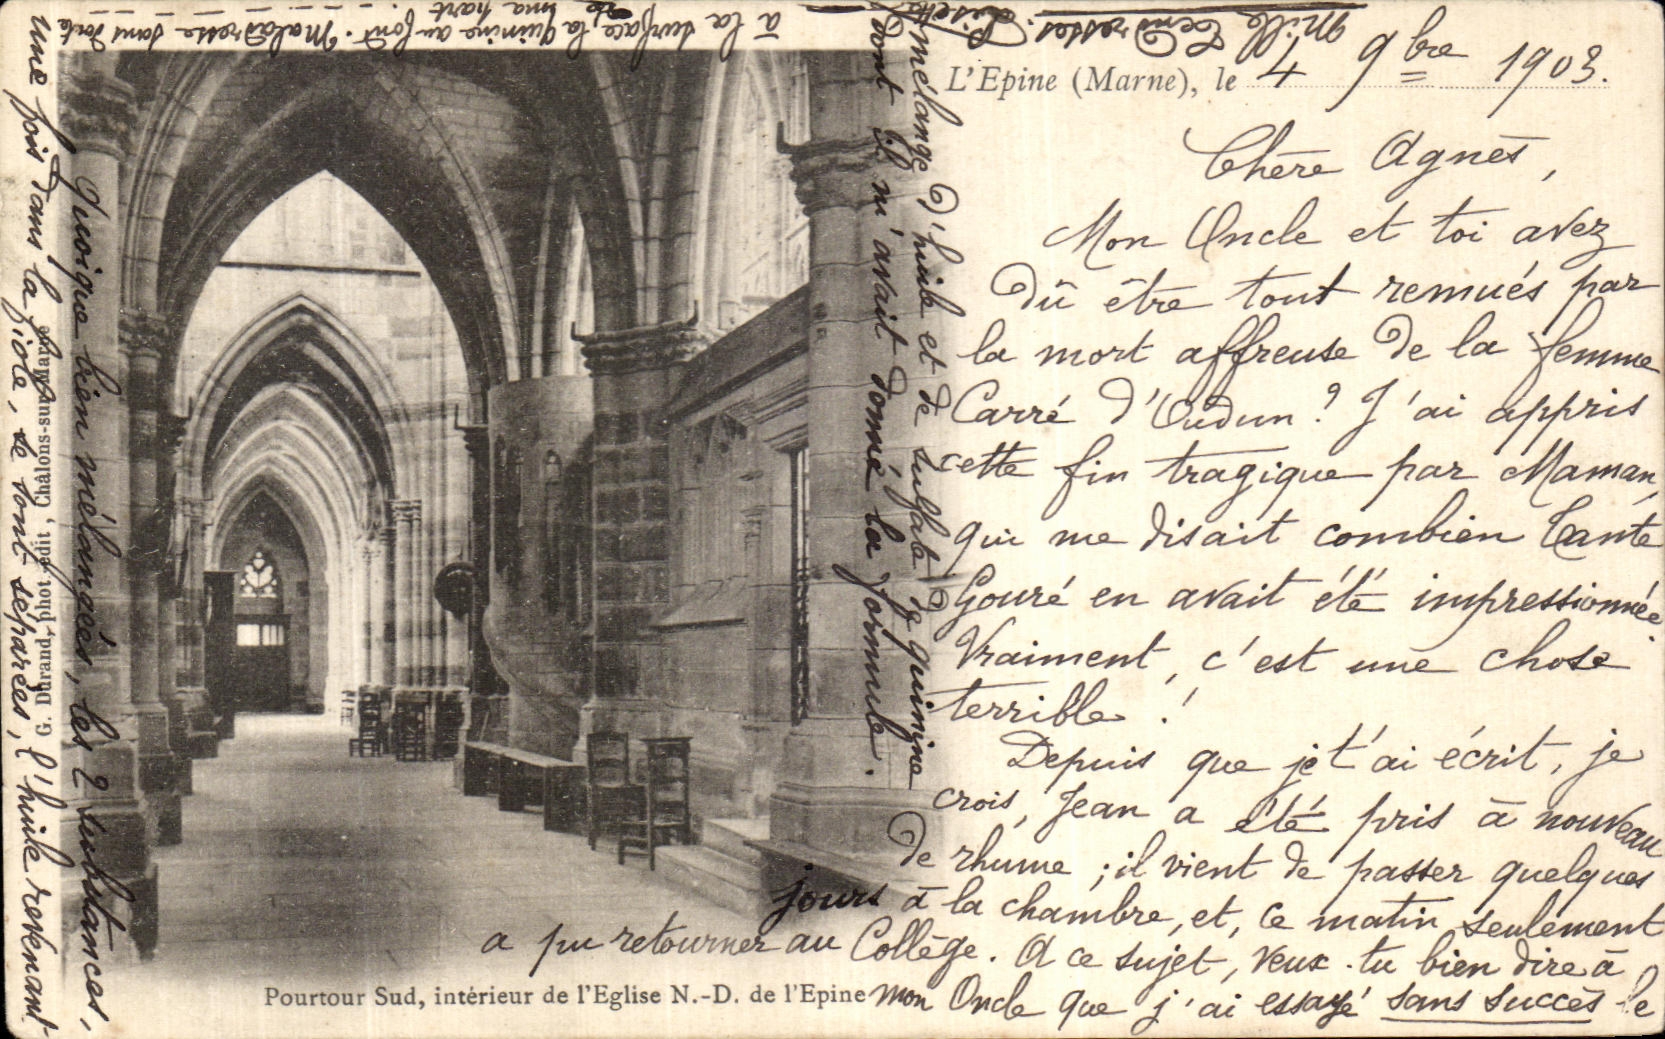 L'Epine (Marne), le 4 9bre 1903.
Chère Agnès,
Mon Oncle et toi avez
dû être tout remués par
la mort affreuse de la femme
Carré d'Oudun ? J'ai appris
cette fin tragique par Maman,
qui me disait combien Tante
Gouré en avait été impressionnée.
Vraiment, c'est une chose
terrible !
Depuis que je t'ai écrit, je
crois, Jean a été pris à nouveau
de rhume ; il vient de passer quelques
jours à la chambre, et, ce matin seulement
a pu retourner au Collège. A ce sujet, veux-tu bien dire à
mon Oncle que j'ai essayé sans succès le
mélange d'huile et de sulfate de quinine
dont il m'avait donné la formule.
Quoique bien mélangées, les 2 substances,
une fois dans la fiole, se sont séparées, l'huile revenant
à la surface la quinine au fond. Maladresse sans doute
de ma part
Mille tendresses.
Pourtour Sud, intérieur de l'Eglise N.-D. de l'Epine
G. Durand, phot. édit, Châlons-sur-Marne